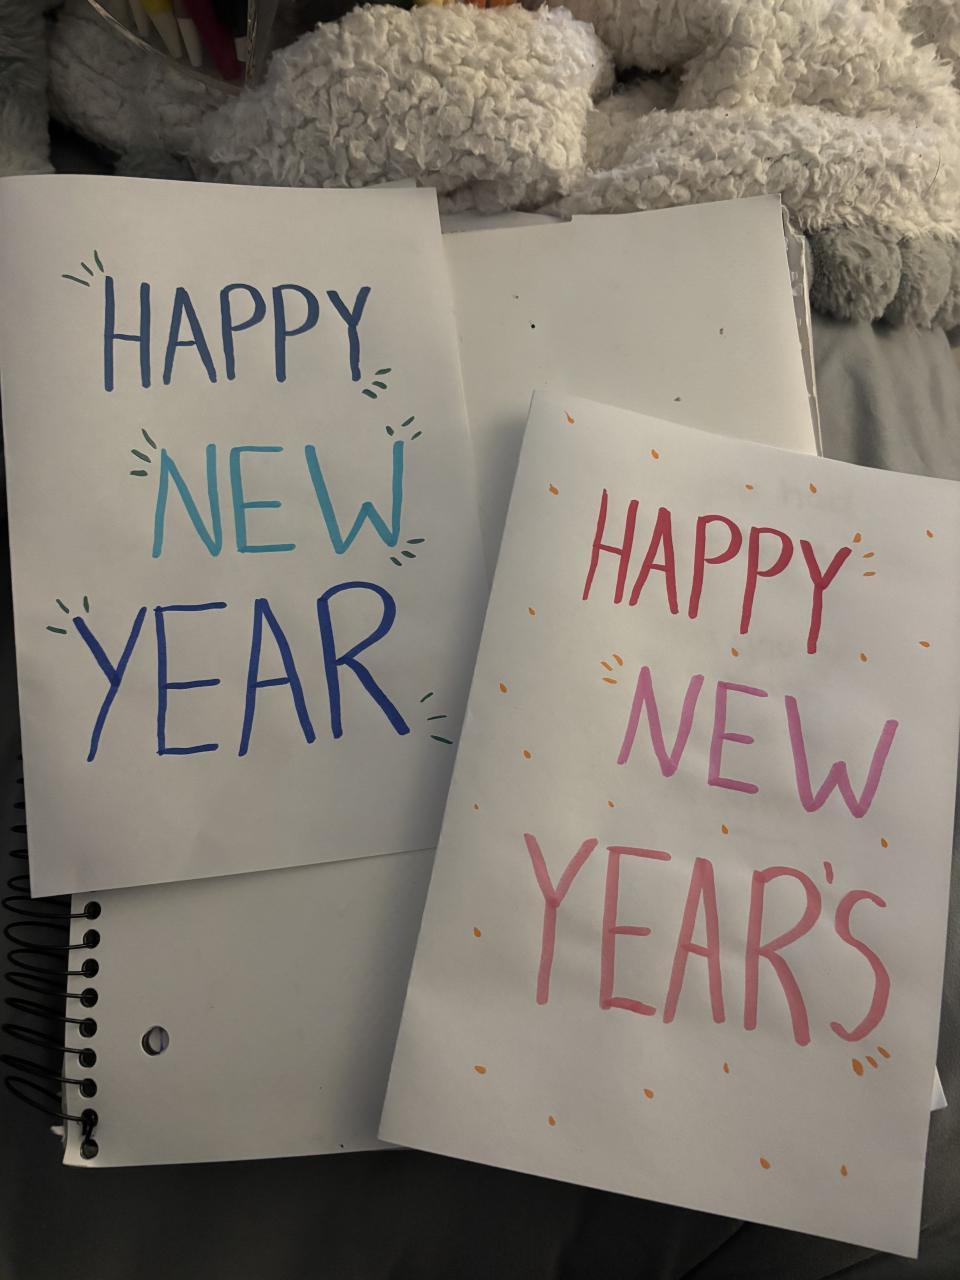 HAPPY
NEW
YEAR
HAPPY
NEW
YEAR'S